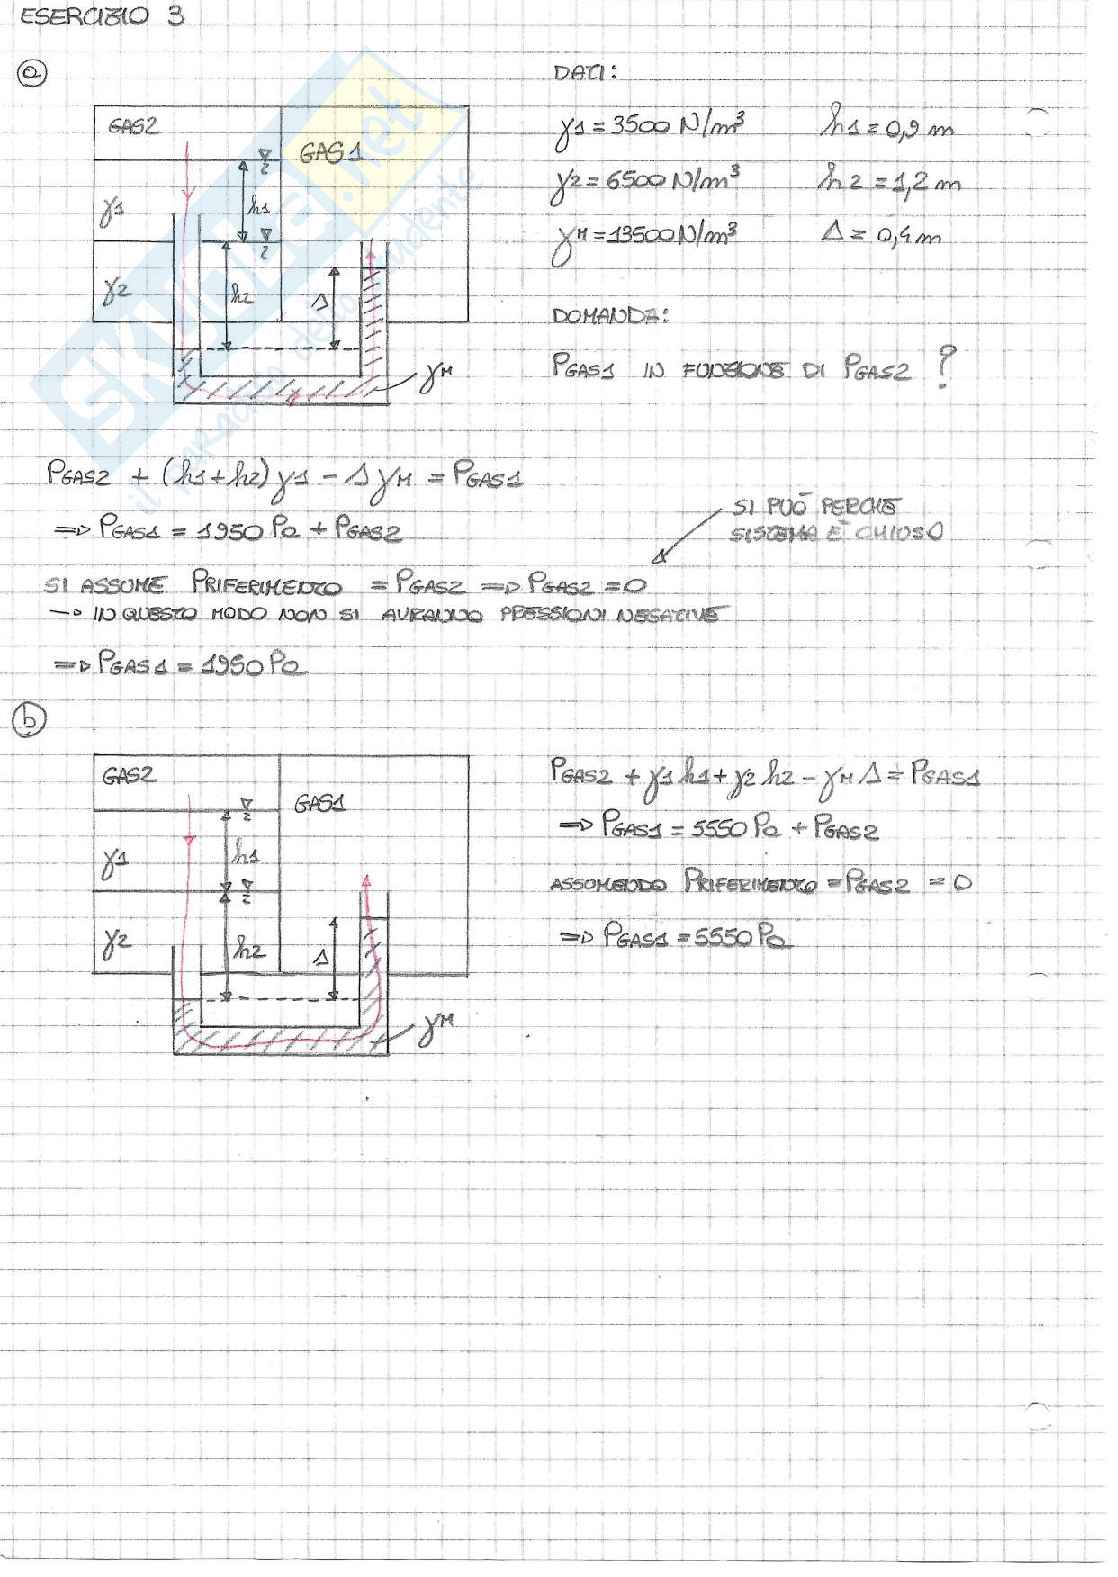 ESERCIZIO 3
a
DATI:
GAS2
GAS1
γ1 = 3500 N/m³ h1 = 0,9 m
γ2 = 6500 N/m³ h2 = 1,2 m
γM = 13500 N/m³ Δ = 0,4 m
γ1
h1
γ2
h2
Δ
γM
DOMANDA:
PGAS1 IN FUNZIONE DI PGAS2 ?
SKUOLA.net
il paradiso dello studente
PGAS2 + (h1+h2) γ1 - Δ γM = PGAS1
=> PGAS1 = 1950 Pa + PGAS2
SI PUÒ PERCHÈ
SISTEMA È CHIUSO
SI ASSUME PRIFERIMENTO = PGAS2 => PGAS2 = 0
-> IN QUESTO MODO NON SI AVRANNO PRESSIONI NEGATIVE
=> PGAS1 = 1950 Pa
b
GAS2
GAS1
γ1
h1
γ2
h2
Δ
γM
PGAS2 + γ1 h1 + γ2 h2 - γM Δ = PGAS1
=> PGAS1 = 5550 Pa + PGAS2
ASSUMENDO PRIFERIMENTO = PGAS2 = 0
=> PGAS1 = 5550 Pa